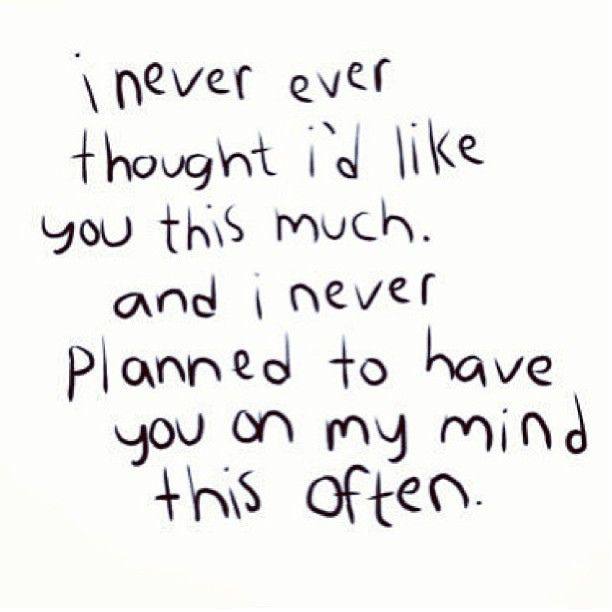 i never ever
thought i'd like
you this much.
and i never
planned to have
you on my mind
this often.